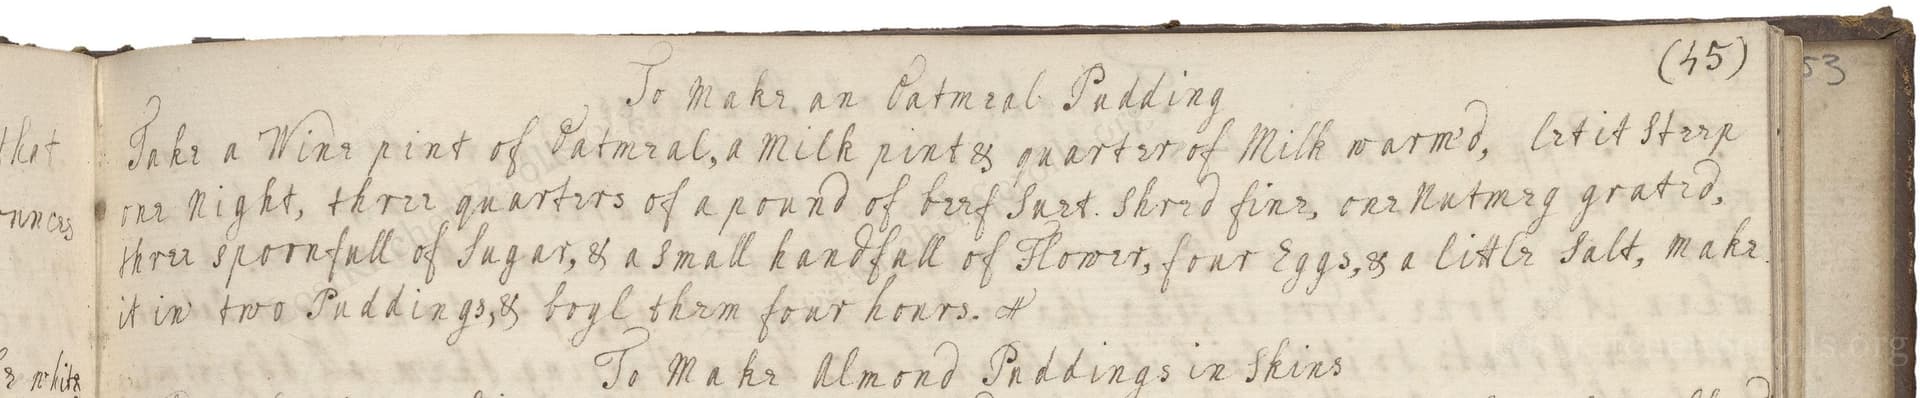 (45)
53
To Make an Oatmeal Pudding
Take a Wine pint of Oatmeal, a Milk pint & quarter of Milk warm'd, let it Steep
one Night, three quarters of a pound of beef Suet Shred fine, one Nutmeg grated,
three spoonfull of Sugar, & a Small handfull of Flower, four Eggs, & a little Salt, make
it in two Puddings, & boyl them four hours.
To Make Almond Puddings in Skins
that
ounces
white